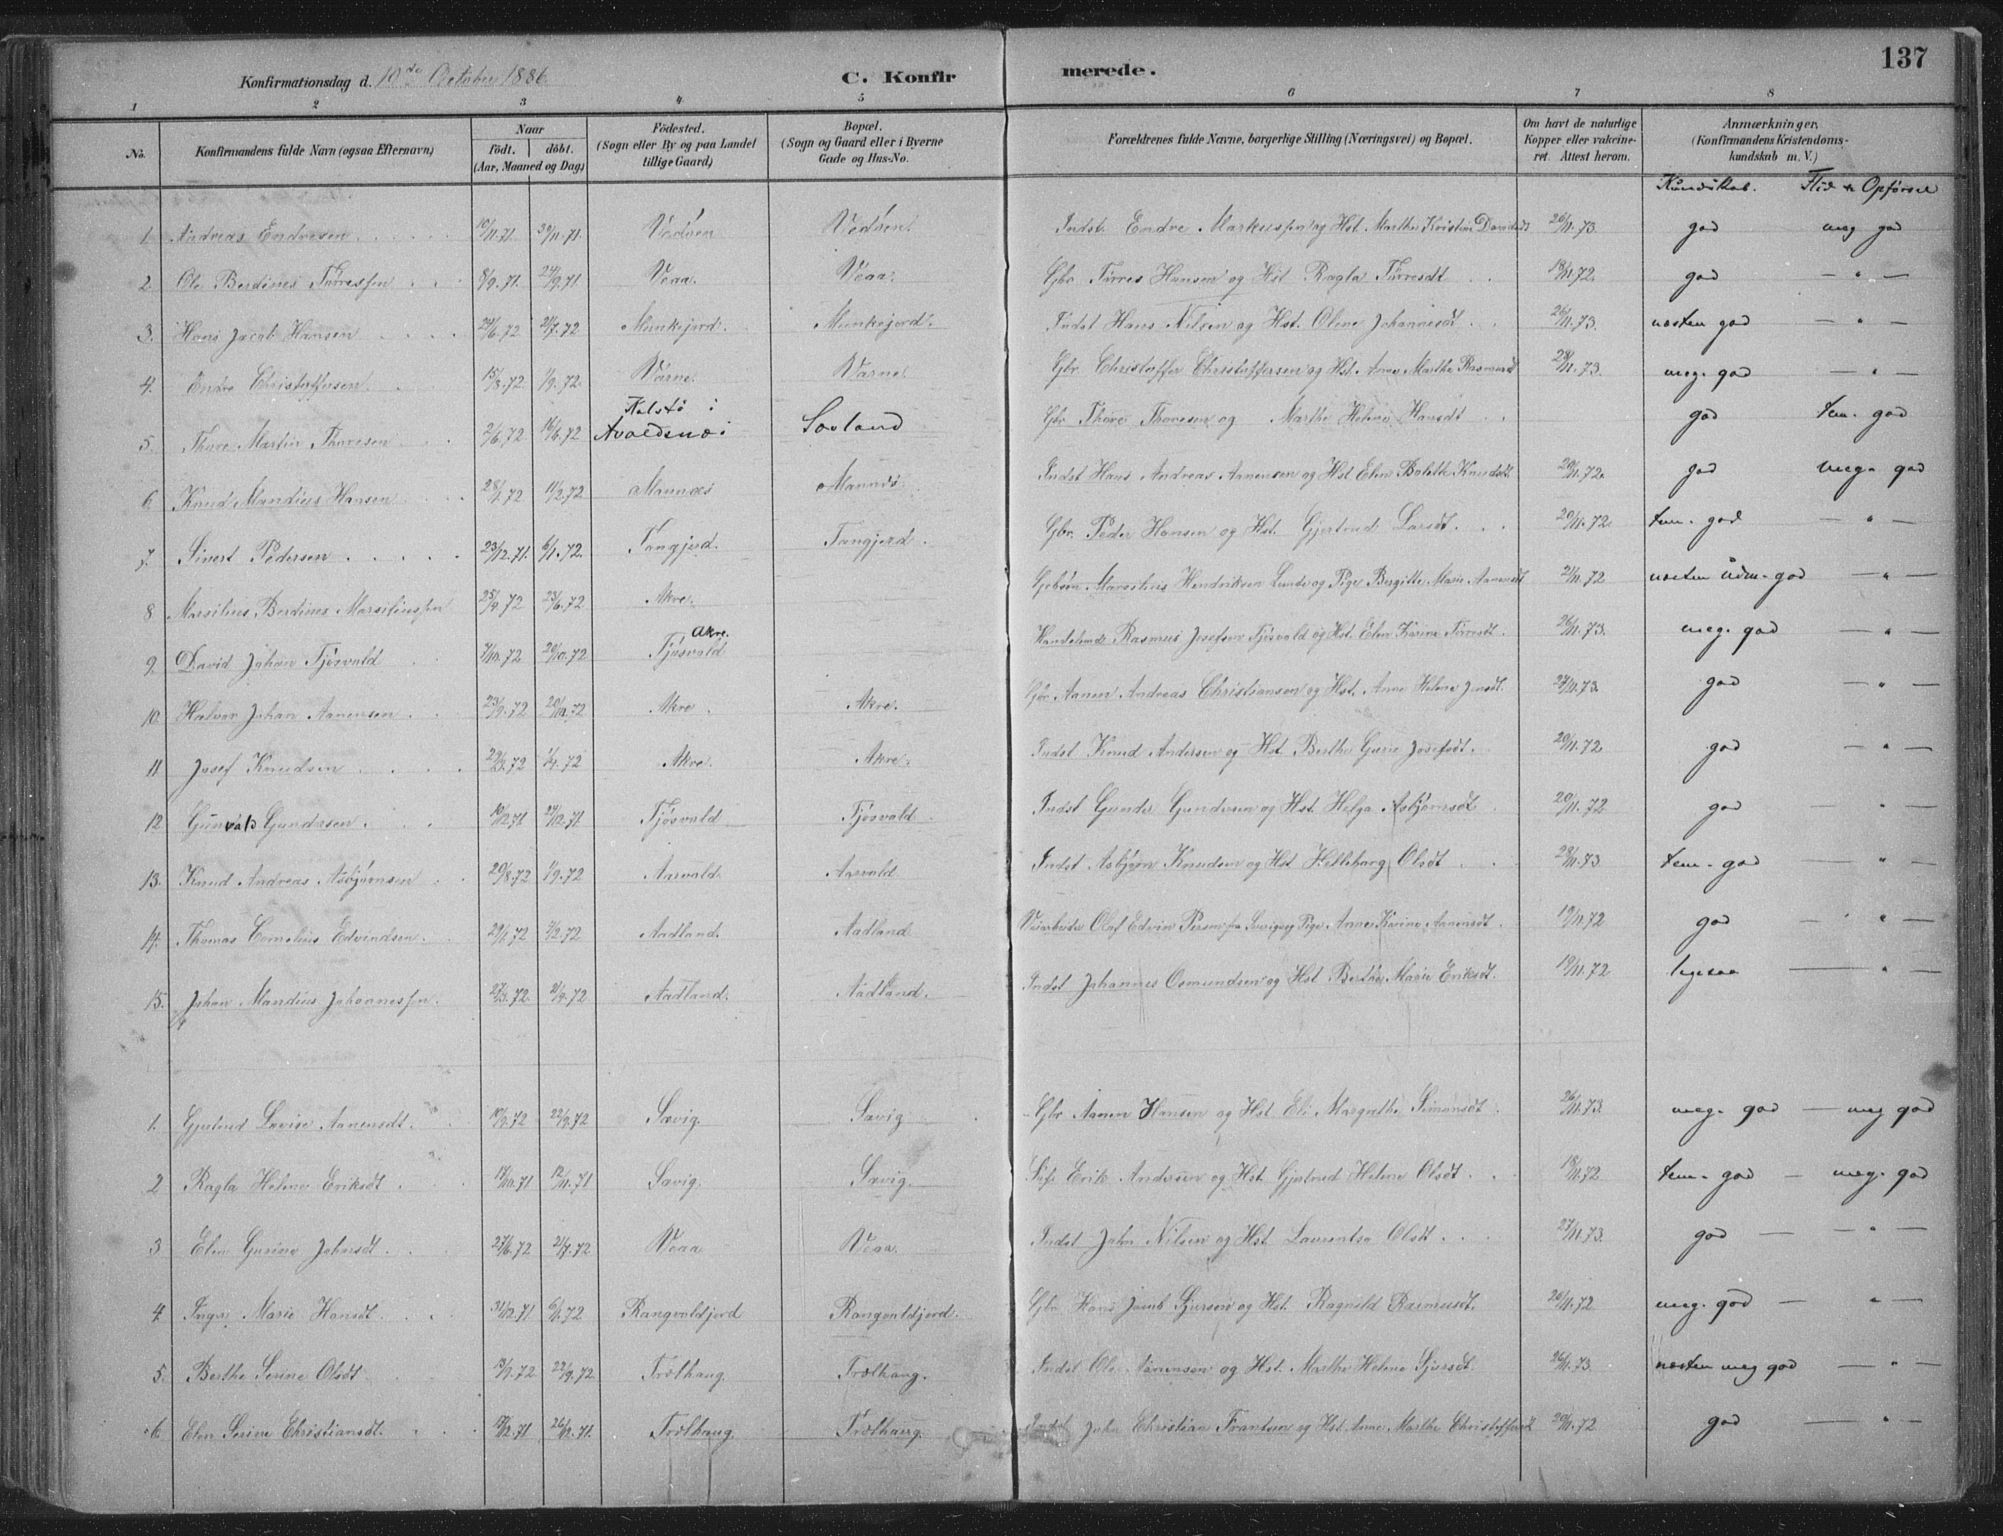 137
Konfirmationsdag d. 10de October 1886
C. Konfirmerede.
1 2 3 4 5 6 7 8
No. Konfirmandens fulde Navn (ogsaa Efternavn) Naar födt. döbt. (Aar, Maaned og Dag) Födested. (Sogn eller By og paa Landet tillige Gaard) Bopæl. (Sogn og Gaard eller i Byerne Gade og Hus-No. Forældrenes fulde Navne, borgerlige Stilling (Næringsvei) og Bopæl. Om havt de naturlige Kopper eller vakcineret. Attest herom. Anmærkninger. (Konfirmandens Kristendomskundskab m. V.)
Kundskab. Flid & Opførsel
1. Andreas Endresen 10/11.71. 30/11.71. Vedøen Vedøen. Indst. Endre Markussen og Hst. Marthe Kristine Davidsdt 26/11.73. god meg god
2. Ole Berdines Tørressen 8/9.71. 24/9.71 Veaa. Veaa. Gbr. Tørres Hansen og Hst Ragla Tørresdt 19/11.72. god — " —
3. Hans Jacob Hansen 24/6.72 21/7.72 Munkejord. Munkejord. Indst Hans Nilsen og Hst. Olene Johannesdt 26/11.73. næsten god — " —
4. Endre Christoffersen 15/8.72. 1/9.72. Varne Varne Gbr. Christoffer Christoffersen og Hst. Anne Marthe Rasmusdt 28/11.73. meg. god — " —
5. Thore Martin Thoresen 2/6.72 16/6.72 Kalstø i Avaldsnæs Sæland Gbr. Thore Thoresen og Marthe Helene Hansdt god tem. god
6. Knud Mandius Hansen 28/1.72 11/2.72 Mannæs Mannæs. Indst Hans Andreas Aanensen og Hst Elen Bolette Knudsdt 20/11.72. god meg. god
7. Sivert Pedersen 23/12.71. 6/1.72. Tangjerd. Tangjerd. Gbr. Peder Hansen og Hst. Gjertrud Larsdt. 20/11.72. tem. god — " —
8 Marsilius Berdines Marsiliussen 25/4.72 23/6.72 Akre. Marsilius Hendriksen Lunde og Pige Bergitte Marie Aanensdt 21/11.72 næsten udm. god — " —
9. David Johan Tjøsvald 7/10.72 20/10.72 Tjøsvald Akre. Handelsmd. Rasmus Josefsen Tjøsvald og Hst. Elen Karine Tørresdt. 26/11.73. meg. god — " —
10. Halvor Johan Aanensen 23/9.72 20/10.72 Akre. Akre. Gbr Aanen Andreas Christiansen og Hst. Anne Helene Jensdt. 27/11.73. god — " —
11 Josef Knudsen 22/3.72 1/4.72 Akre. Akre. Indst Knud Andersen og Hst Berthe Gurie Josefsdt. 20/11.72. god — " —
12 Gunvald Gundersen 10/12.71 27/12.71 Tjøsvald Tjøsvald Indst Gunder Gundersen og Hst. Helga Asbjørnsdt 20/11.72 god — " —
13. Knud Andreas Asbjørnsen 20/8.72 1/9.72 Aasvald. Aasvald Indst Asbjørn Knudsen og Hst Helleborg Olsdt 28/11.73 tem. god — " —
14. Thomas Cornelius Edvindsen 29/1.72 7/2.72 Aadland. Aadland Olaf Edvin Persen fra og Pige Anne Karine Aanensdt. 19/11.72 god — " —
15. Johan Mandius Johannessen 27/3.72 21/4.72 Aadland. Aadland. Indst Johannes Osmundsen og Hst Berthe Marie Eriksdt. 19/11.72 ligesaa — " —
1. Gjertrud Lavise Aanensdt. 10/9.72 22/9.72 Sævig. Sævig Gbr. Aanen Hansen og Hst Eli Margrethe Simonsdt 26/11.73. meg. god — meg god
2 Ragla Helene Eriksdt 19/10.71 12/11.71 Sævig. Sævig. Erik Andersen og Hst Gjertrud Helene Olsdt. 18/11.72 tem. god — meg. god
3 Elen Gurine Johnsdt. 27/6.72 21/7.72 Veaa Veaa. Indst John Nilsen og Hst. Laurentse Olsdt 27/11.73. god — " —
4. Inger Marie Hansdt. 31/12.71 6/1.72 Rangvaldjord Rangvaldjord. Gbr Hans Jacob Sjursen og Hst. Ragnild Rasmusdt. 20/11.72 meg. god — " —
5. Berthe Serine Olsdt 13/9.72 22/9.72 Trælhaug. Trælhaug. Indst Ole Aanensen og Hst. Marthe Helene Sjursdt. 26/11.73. næsten meg god — " —
6. Elen Serine Christiansdt. 17/12.71 26/12.71. Trælhaug. Trælhaug. Indst John Christian Frantsen og Hst. Anne Marthe Christoffersdt 20/11.72 god — " —